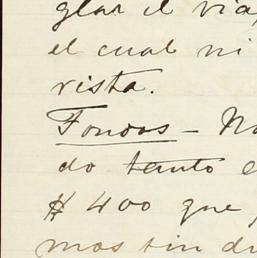 glar el via
el cual ni
vista.
Fondos - No
do tanto e
$ 400 que
mos sin di